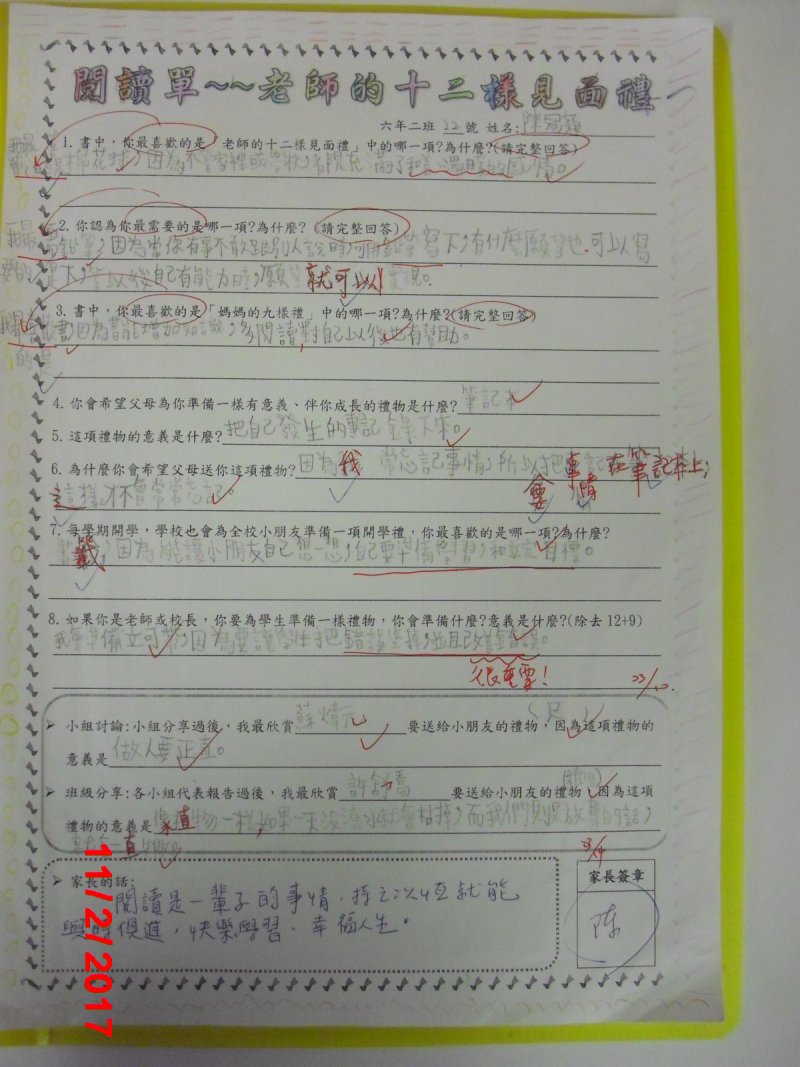 閱讀單~~老師的十二樣見面禮
六年二班 22 號 姓名:陳冠穎
1. 書中，你最喜歡的是「老師的十二樣見面禮」中的哪一項?為什麼?(請完整回答)
我最喜歡的是棉花球，因為不管家裡或學校，都充滿了和 溫暖的感情。
2. 你認為你最需要的是哪一項?為什麼?(請完整回答)
我最需要的是鉛筆，因為當你有事不敢跟別人說時，可用鉛筆寫下，有什麼願望也可以寫
下，等以後自己有能力時，願望就可以實現。
3. 書中，你最喜歡的是「媽媽的九樣禮」中的哪一項?為什麼?(請完整回答)
書，因為書能增加知識，多閱讀，對自己以後也有幫助。
4. 你會希望父母為你準備一樣有意義、伴你成長的禮物是什麼?筆記本
5. 這項禮物的意義是什麼?把自己發生的事記錄下來。
6. 為什麼你會希望父母送你這項禮物?因為我常忘記事情，所以把 事情 記在筆記本上，
這樣才不會常常忘記。
7. 每學期開學，學校也會為全校小朋友準備一項開學禮，你最喜歡的是哪一項?為什麼?
籤，因為能讓小朋友自己想一想，自己要準備學習，和立定目標。
8. 如果你是老師或校長，你要為學生準備一樣禮物，你會準備什麼?意義是什麼?(除去 12+9)
我會準備立可帶，因為要讓學生把錯誤塗掉，並且改善錯誤。
很重要!
小組討論:小組分享過後，我最欣賞 蘇煒元 要送給小朋友的禮物(尺)，因為這項禮物的
意義是 做人要正直。
班級分享:各小組代表報告過後，我最欣賞 許舒喬 要送給小朋友的禮物(植物)，因為這項
禮物的意義是 像植物一樣，如果一天沒澆水就會枯掉，而我們則是放棄的話，
就會一直失敗。
家長的話:
閱讀是一輩子的事情，持之以恆就能
與時俱進，快樂學習、幸福人生。
家長簽章
陳
11/2/2017